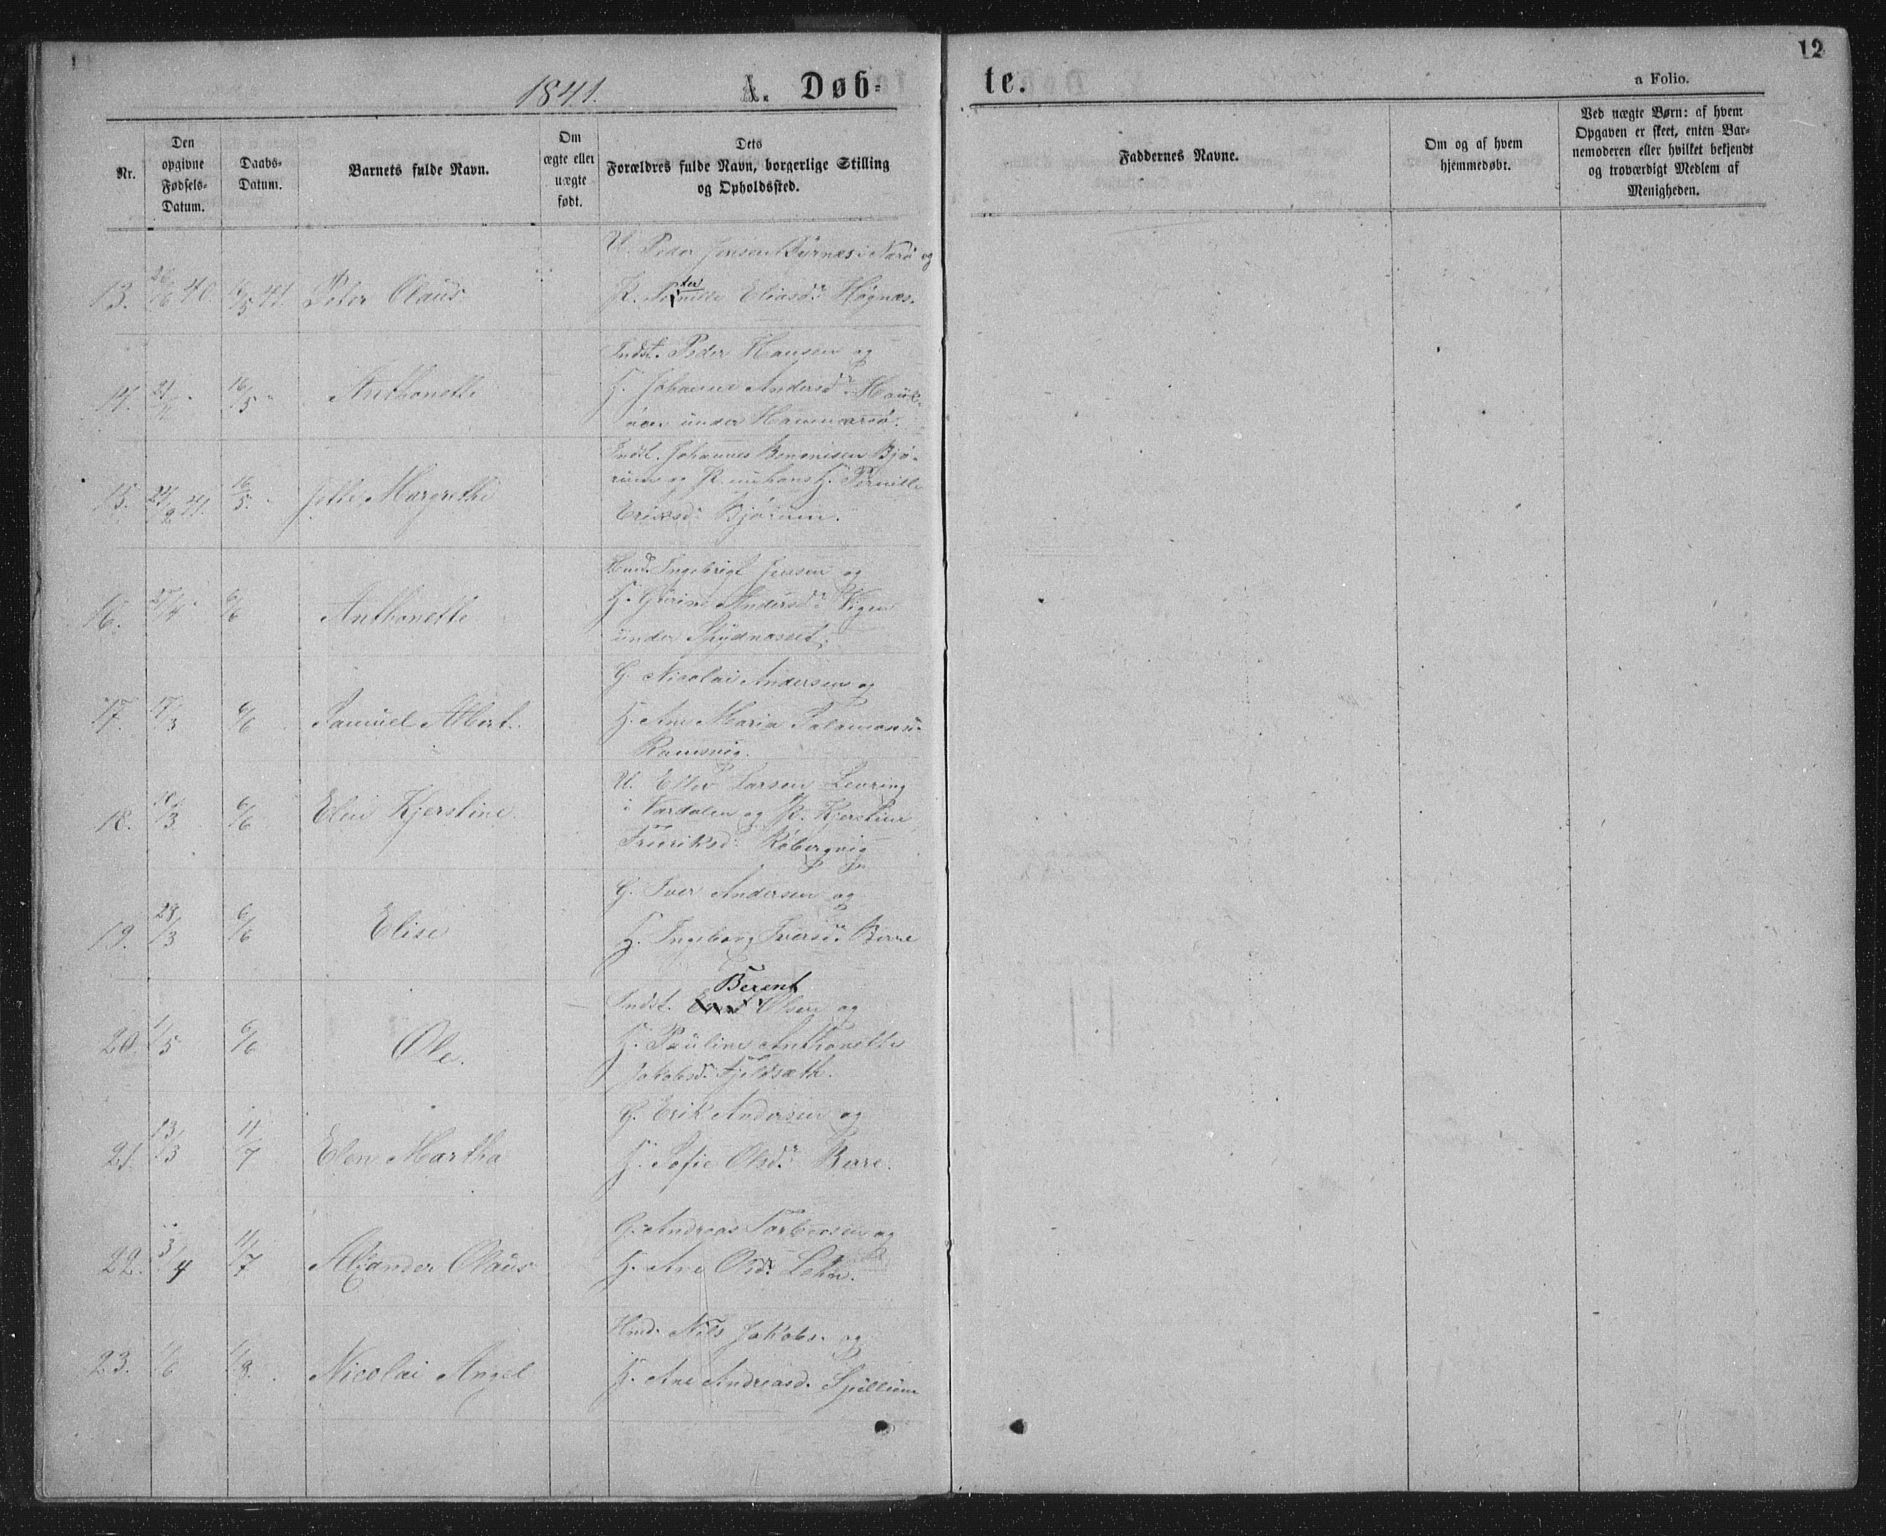 12
1841.
A. Døb-
te.
a Folio.
Nr.
Den opgivne Fødsels-Datum.
Daabs-Datum.
Barnets fulde Navn.
Om ægte eller uægte født.
Dets Forældres fulde Navn, borgerlige Stilling og Opholdssted.
Faddernes Navne.
Om og af hvem hjemmedøbt.
Ved uægte Børn: af hvem Opgaven er skeet, enten Barnemoderen eller hvilket bekjendt og troværdigt Medlem af Menigheden.
U. Peder Jensen i Nærö og
13. 26/6 40. 16/5 41. Peter Olaus
P. Eliasd. Høgnæs.
Indst. Peder Hansen og
14. 16/5 Anthonette
H. Johanna Andersd. Hauk-
öen under Hammersø.
Indst. Johannes Bjö-
15. 41. 16/5 Jette Margrethe
rum og H. Pernille
Eriksd. Bjørum.
Huusm. Ingebrigt Jensen og
16. 6/6 Anthonette
H. Andersd. Vigen
under Spydnæsset.
G. Nicolai Andersen og
17. 17/3 6/6 Samuel Albert.
H. Ane Maria Salamonsd.
Ramsvig.
U. Larsen Levring
18. 6/6 Elen Kjerstine
i Værdalen og P. Kjerstine
Fredriksd. Kobergvig
G. Iver Andersen og
19. 28/3 6/6 Elise
H. Ingeborg Iversd. Berre
Berent
Indst. Olsen og
20. 1/5 6/6 Ole.
H. Pauline Anthonette
Jakobsd. Fjeldsæth.
G. Erik Andersen og
21. 13/3 11/7 Elen Martha
H. Sofie Olsd. Berre.
G. Andreas Torbersen og
22. 3/4 11/7 Alexander Olaus
H. Ane Olsd. Lehn.
Hmd. Nils Jakobs. og
23. 1/6 1/8. Nicolai Angel
H. Ane Andreasd. Spillum